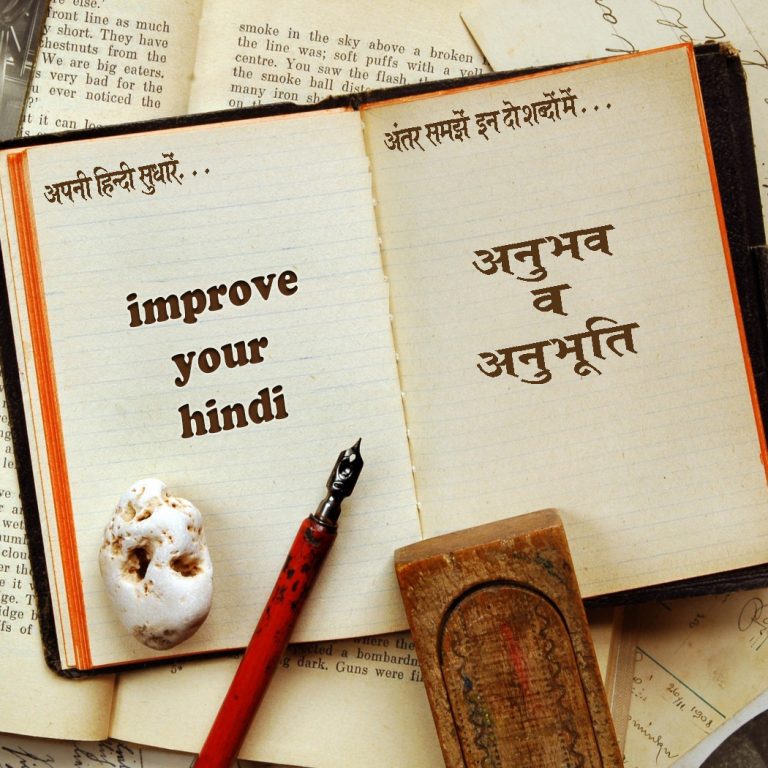 front line as much
short. They have
chestnuts from the
We are big eaters.
s very bad for the
u ever noticed the
smoke in the sky above a broken
the line was; soft puffs with a
centre. You saw the flash,
the smoke ball
many iron
it can
अपनी हिन्दी सुधारें...
improve
your
hindi
अंतर समझें इन दो शब्दों में...
अनुभव
व
अनुभूति
where the
a bombardm
ng dark. Guns were